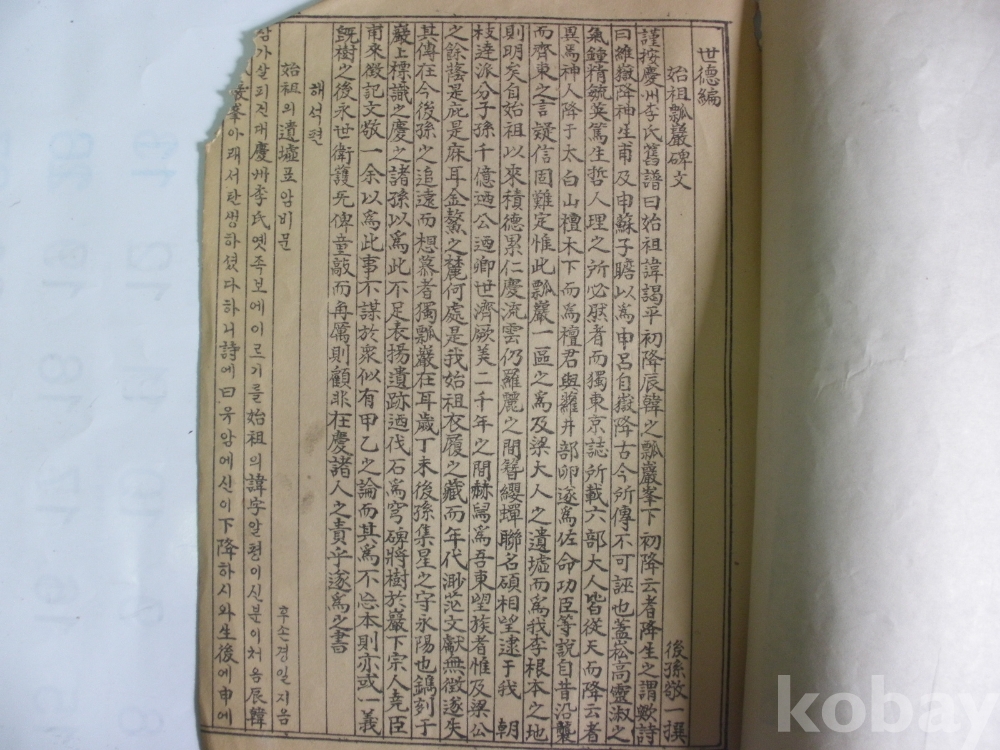 世德編
始祖瓢巖碑文 後孫敬一撰
謹按慶州李氏舊譜曰始祖諱謁平初降辰韓之瓢巖峯下初降云者降生之謂歟詩
曰維嶽降神生甫及申蘇子瞻以爲申呂自嶽降古今所傳不可誣也盖崧高靈淑之
氣鍾精毓英篤生哲人理之所必然者而獨東京誌所載六部大人皆從天而降云者
異焉神人降于太白山檀木下而爲檀君與蘿井部卵遂爲佐命功臣等說自昔沿襲
而齊東之言疑信固難定惟此瓢巖一區之爲及梁大人之遺墟而爲我李根本之地
則明矣自始祖以來積德累仁慶流雲仍羅麗之間簪纓蟬聯名碩相望逮于我 朝
枝達派分子孫千億迺公迺卿世濟厥美二千年之間赫舄爲吾東望族者惟及梁公
之餘蔭是庇是庥耳金鰲之麓何處是我始祖衣履之藏而年代渺茫文獻無徵遂失
其傳在今後孫之追遠而想慕者獨瓢巖在耳歲丁未後孫集星之守永陽也鐫刻于
巖上標識之慶之諸孫以爲此不足表揚遺跡迺伐石爲穹碑將樹於巖下宗人堯臣
甫來徵記文敬一余以爲此事不謀於衆似有甲乙之論而其爲不忘本則亦或一義
旣樹之後永世衛護旡俾童敲而再厲則顧非在慶諸人之責乎遂爲之書
해석편
始祖의遺墟표암비문 후손경일지음
삼가살피건대慶州李氏옛족보에이르기를始祖의諱字알평이신분이처음辰韓
峯아래서탄생하셨다하니詩에曰욱암에신이下降하시와生後에申에
kobay